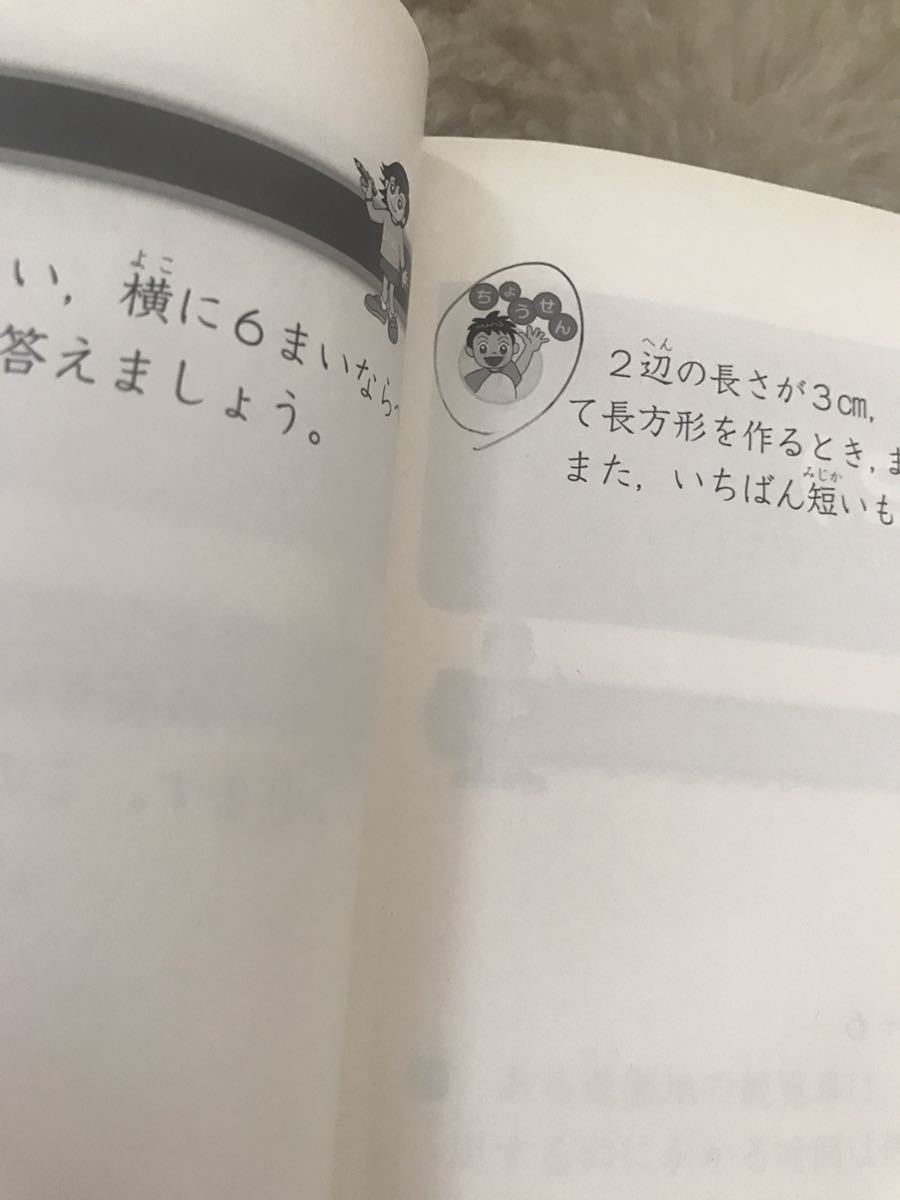 い，横に6まいなら
よこ
答えましょう。
ちょうせん
2辺の長さが3cm，
へん
て長方形を作るとき，ま
また，いちばん短いも
みじか